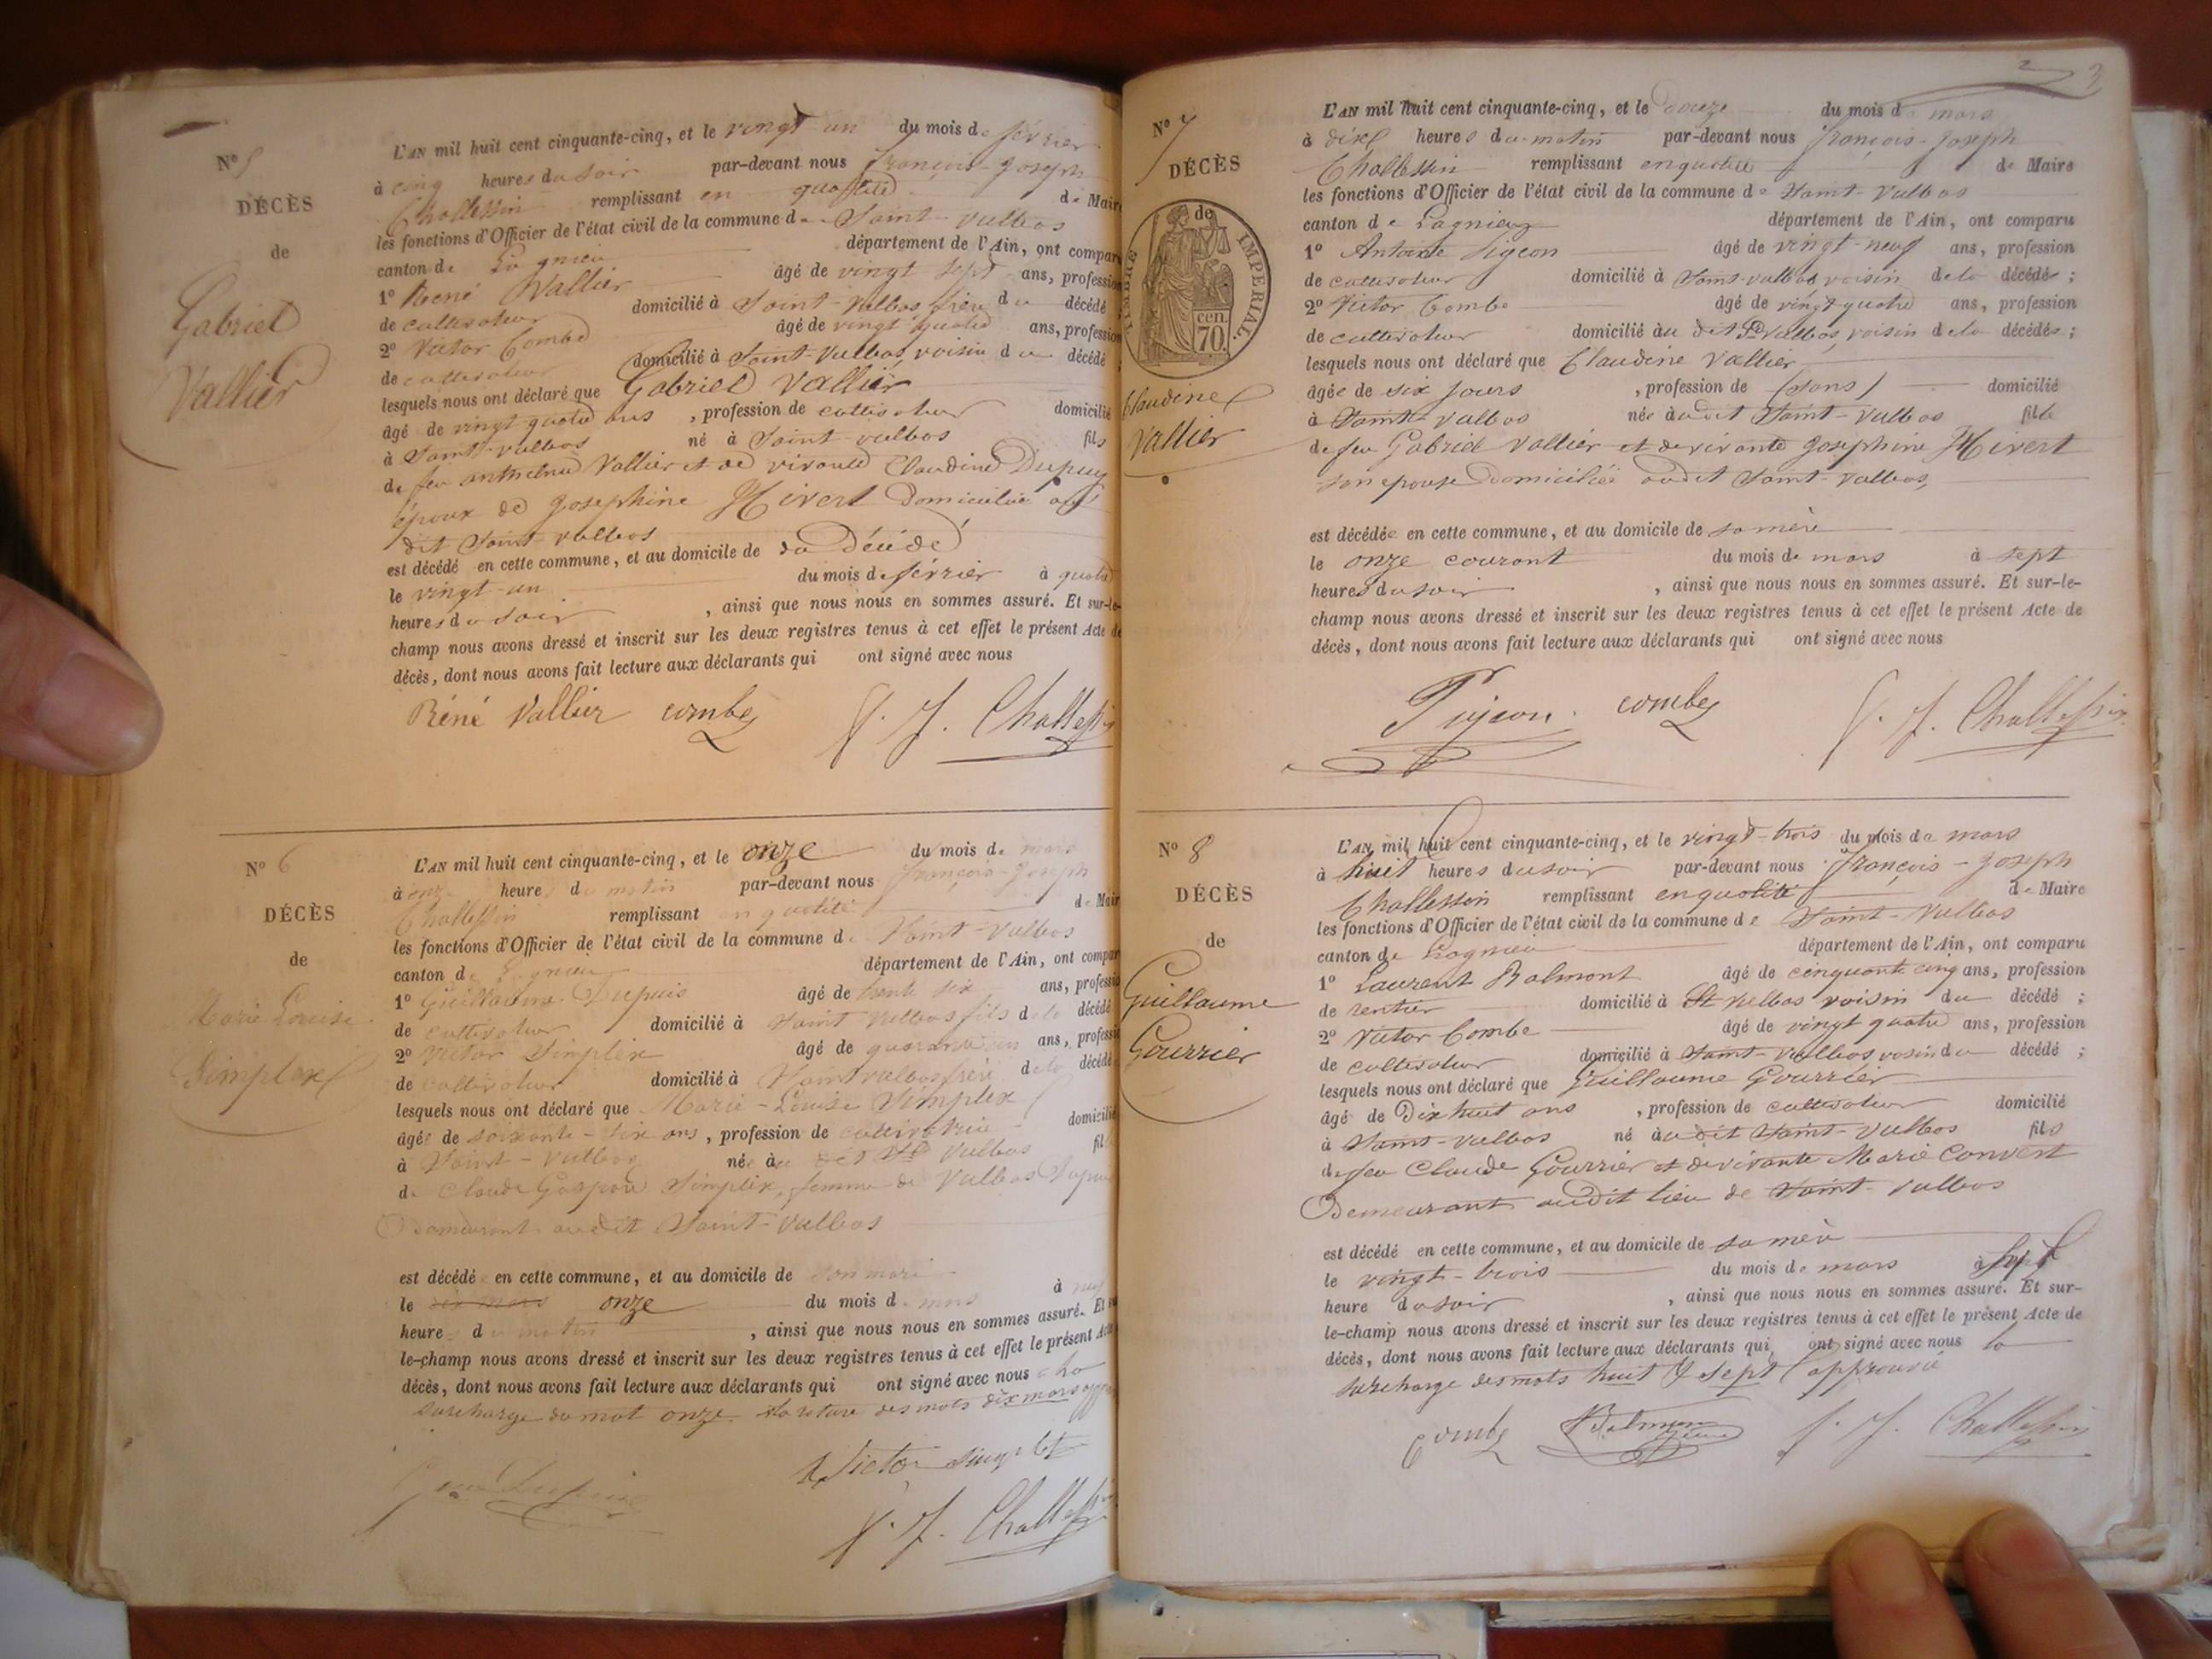 Nº 5
DÉCÈS
de
Gabriel
Vallier
L'AN mil huit cent cinquante-cinq, et le vingt-un du mois de février
à cinq heures du soir par-devant nous françois-Joseph
Challessin remplissant en qualité de Maire
les fonctions d'Officier de l'état civil de la commune de Saint-Vulbas
canton de Lagnieu département de l'Ain, ont compar
1º René Vallier âgé de vingt sept ans, profession
de cultivateur domicilié à Saint-Vulbas frère du décédé
2º Victor Combe âgé de vingt quatre ans, profession
de cultivateur domicilié à Saint-Vulbas, voisin du décédé
lesquels nous ont déclaré que Gabriel Vallier
âgé de vingt quatre ans, profession de cultivateur domicilié
à Saint-Vulbas né à Saint-vulbas fils
de feu anthelme Vallier et de vivante Claudine Dupuy
époux de Josephine Hivert domiciliée au
dit Saint-vulbas
est décédé en cette commune, et au domicile de du Décédé
le vingt-un du mois de février à quatre
heures du soir, ainsi que nous nous en sommes assuré. Et sur-le-
champ nous avons dressé et inscrit sur les deux registres tenus à cet effet le présent Acte de
décès, dont nous avons fait lecture aux déclarants qui ont signé avec nous
Réné Vallier combe f. J. Challessin
Nº 6
DÉCÈS
de
Marie Louise
Simplex
L'AN mil huit cent cinquante-cinq, et le onze du mois de mars
à onze heure du matin par-devant nous françois-Joseph
Challessin remplissant en qualité de Mair
les fonctions d'Officier de l'état civil de la commune de Saint-Vulbas
canton de Lagnieu département de l'Ain, ont compar
1º Guillaume Dupuis âgé de trente six ans, profess
de cultivateur domicilié à Saint Vulbas fils de la décédé
2º Victor Simplex âgé de quarante ans, profess
de cultivateur domicilié à Saint vulbas frère de la décédé
lesquels nous ont déclaré que Marie-Louise Simplex
âgée de soixante-six ans, profession de cultivatrice domicilié
à Saint-Vulbas née au dit St Vulbas fil
de Claude Gaspard Simplex, femme de Vulbas Dupuis
Demeurant audit Saint-Vulbas
est décédée en cette commune, et au domicile de son mari
le dix mars onze du mois de mars à neuf
heures du matin, ainsi que nous nous en sommes assuré. Et su
le-champ nous avons dressé et inscrit sur les deux registres tenus à cet effet le présent Acte
décès, dont nous avons fait lecture aux déclarants qui ont signé avec nous
surcharge du mot onze. la rature des mots dix mars
Victor Simplex
f. J. Challessin
3
Nº 7
DÉCÈS
de
TIMBRE IMPERIAL.
70 cen.
Claudine
Vallier
L'AN mil huit cent cinquante-cinq, et le douze du mois de mars
à dix heures du matin par-devant nous françois-Joseph
Challessin remplissant en qualité de Maire
les fonctions d'Officier de l'état civil de la commune de Saint-Vulbas
canton de Lagnieu département de l'Ain, ont comparu
1º Antoine Pigeon âgé de vingt-neuf ans, profession
de cultivateur domicilié à Saint-vulbas voisin de la décédée;
2º Victor Combe âgé de vingt-quatre ans, profession
de cultivateur domicilié au dit St Vulbas, voisin de la décédée;
lesquels nous ont déclaré que Claudine Vallier
âgée de six jours, profession de (sans) domicilié
à Saint-Vulbas née audit Saint-Vulbas fille
de feu Gabriel Vallier et de vivante Josephine Hivert
son epouse domiciliée audit Saint-Vulbas,
est décédée en cette commune, et au domicile de sa mère
le onze courant du mois de mars à sept
heures du soir, ainsi que nous nous en sommes assuré. Et sur-le-
champ nous avons dressé et inscrit sur les deux registres tenus à cet effet le présent Acte de
décès, dont nous avons fait lecture aux déclarants qui ont signé avec nous
Pijeon combe f. J. Challessin
Nº 8
DÉCÈS
de
Guillaume
Gourrier
L'AN mil huit cent cinquante-cinq, et le vingt-trois du mois de mars
à huit heures du soir par-devant nous françois-Joseph
Challessin remplissant en qualité de Maire
les fonctions d'Officier de l'état civil de la commune de Saint-Vulbas
canton de Lagnieu département de l'Ain, ont comparu
1º Laurent Balmont âgé de cinquante cinq ans, profession
de rentier domicilié à St Vulbas voisin du décédé;
2º Victor Combe âgé de vingt quatre ans, profession
de cultivateur domicilié à Saint-Vulbas voisin du décédé;
lesquels nous ont déclaré que Guillaume Gourrier
âgé de Dix huit ans, profession de cultivateur domicilié
à Saint-Vulbas né au dit Saint-Vulbas fils
de feu Claude Gourrier et de vivante Marie Convert
Demeurant audit lieu de Saint-Vulbas
est décédé en cette commune, et au domicile de sa mère
le vingt-trois du mois de mars à sept
heure du soir, ainsi que nous nous en sommes assuré. Et sur-
le-champ nous avons dressé et inscrit sur les deux registres tenus à cet effet le présent Acte de
décès, dont nous avons fait lecture aux déclarants qui ont signé avec nous la
surcharge des mots huit & sept approuvée
combe f. J. Challessin